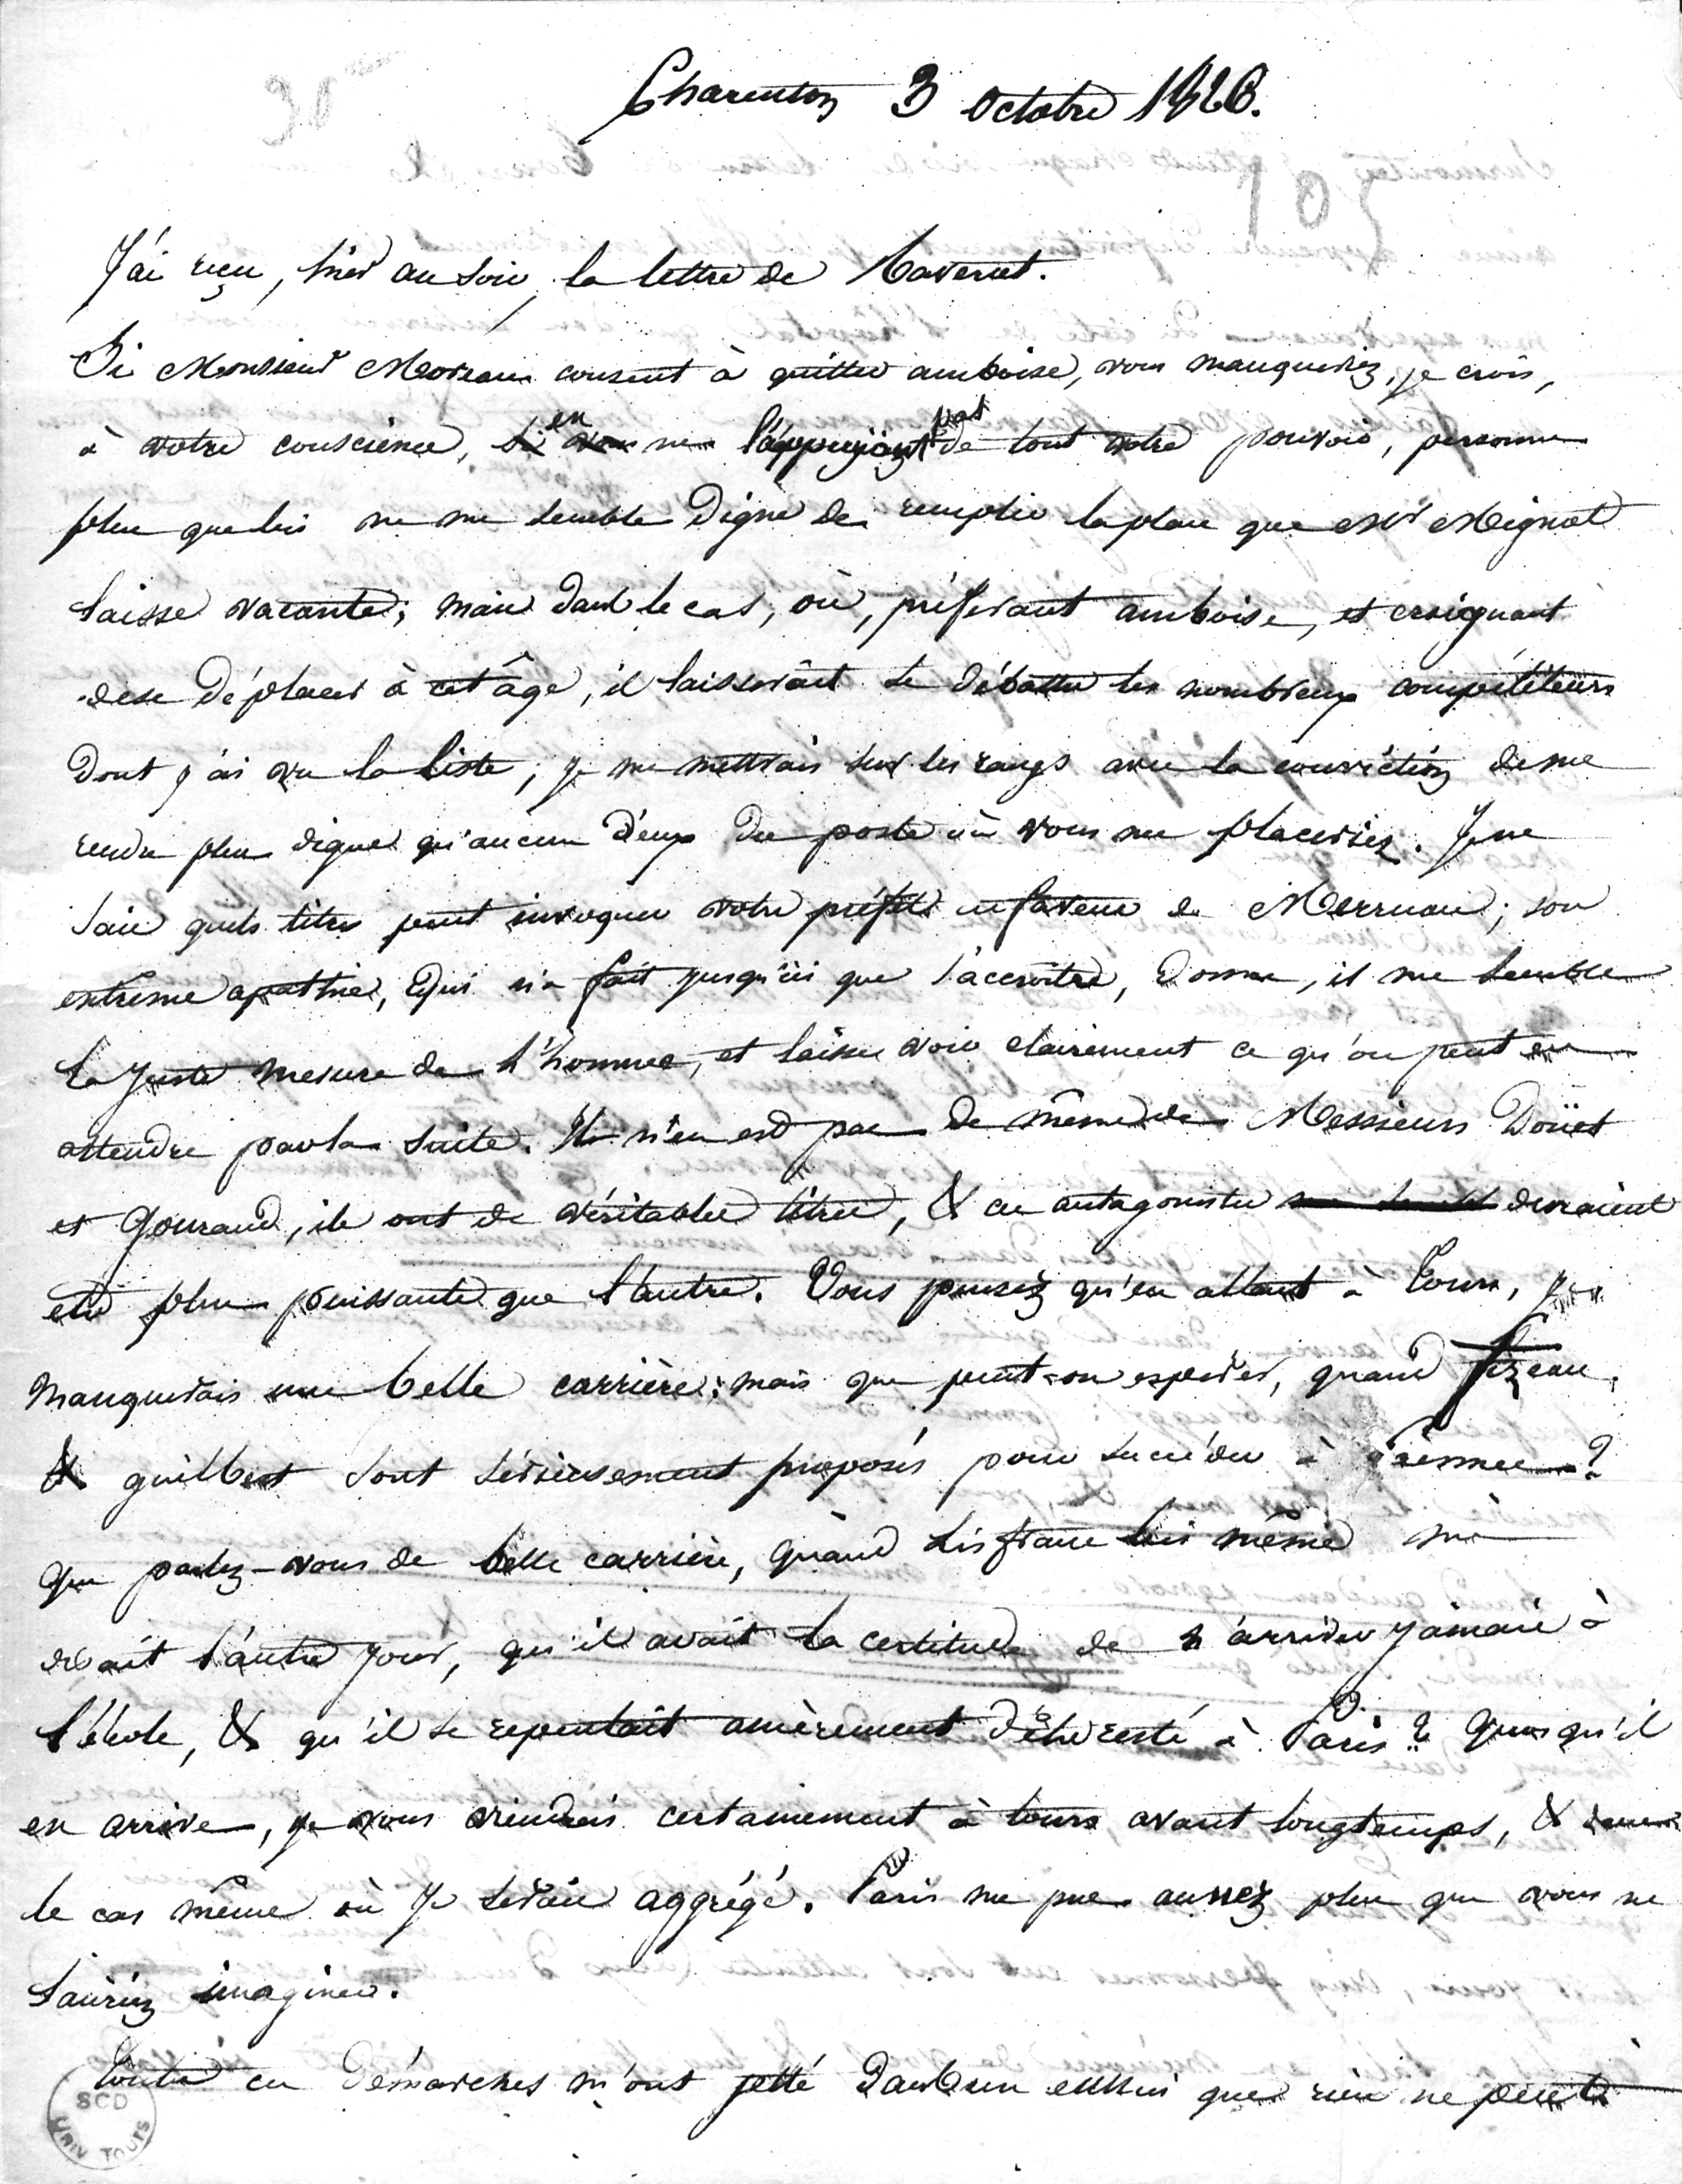 Charenton 3 octobre 1826.
105
J'ai reçu, hier au soir, la lettre de Tavernet.
Si Monsieur Moreau consent à quitter amboise, vous manqueriez, je crois,
à votre conscience, en ne l'appuyant pas de tout votre pouvoir, personne
plus que lui ne me semble digne de remplir la place que Mr Mignot
laisse vacante; mais dans le cas, où, préferant amboise, et craignant
de se déplacer à cet âge, il laisserait se débattre les nombreux compétiteurs
dont j'ai vu la liste; je me mettrais sur les rangs avec la conviction de me
rendre plus digne qu'aucun d'eux du poste où vous me placeriez. Je ne
sais quels titres peut invoquer votre préfet en faveur de Merruau; son
extrème apathie, qui n'a fait jusqu'ici que s'accroitre, donne, il me semble
la juste mesure de l'homme, et laisse voir clairement ce qu'on peut en
attendre par la suite. Il n'en est pas de même de Messieurs Doüet
et Gouraud, ils ont de véritables titres, & ces antagonistes devraient
etre plus puissants que l'autre. Vous pensez qu'en allant à Tours, je
manquerais une belle carrière: mais que peut-on esperer, quand fizeau
& guilbert sont sérieusement proposés pour succéder à Laennec?
que parlez-vous de belle carrière, quand Lisfranc lui même me
disait l'autre jour, qu'il avait la certitude de n'arriver jamais à
l'école, & qu'il se repentait amèrement d'être resté à Paris? Quoiqu'il
en arrive, je vous viendrais certainement à tours avant longtemps, & dans
le cas même où je serais aggrégé. Paris me pue au nez plus que vous ne
sauriez imaginer.
Toutes ces démarches m'ont jetté dans un ennui que rien ne peut
SCD
UNIV TOURS